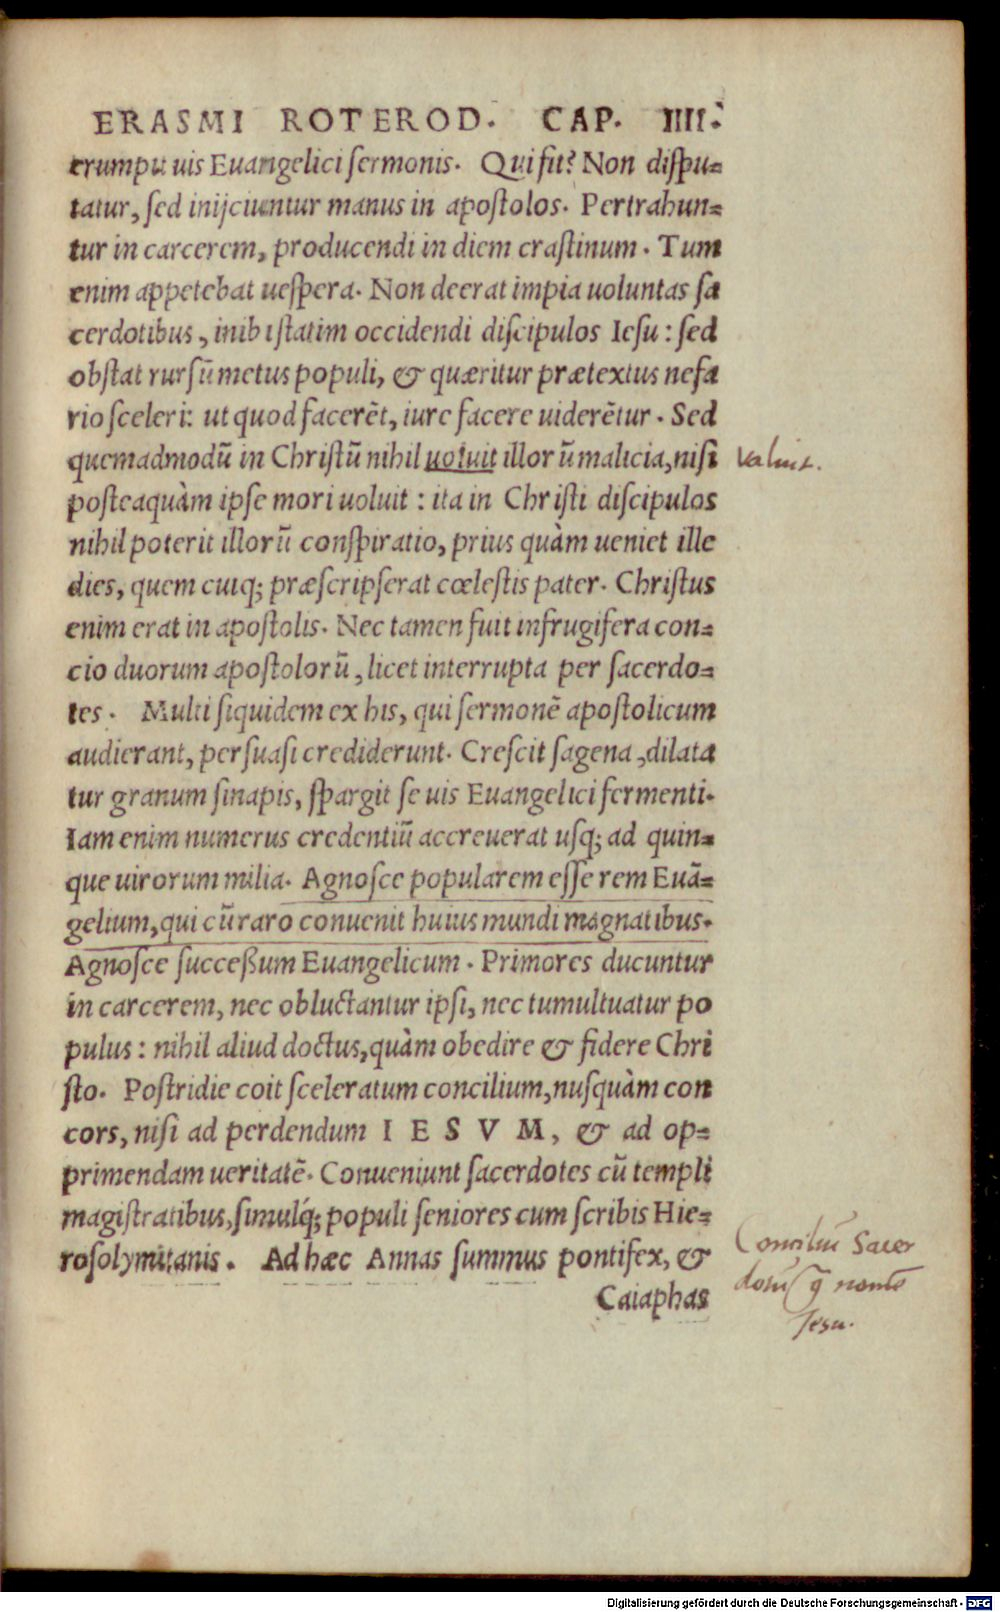 ERASMI ROTEROD. CAP. IIII.
erumpit uis Euangelici sermonis. Qui fit? Non dispu=
tatur, sed inijciuntur manus in apostolos. Pertrahun=
tur in carcerem, producendi in diem crastinum. Tum
enim appetebat uespera. Non deerat impia uoluntas sa
cerdotibus, inibi statim occidendi discipulos Iesu: sed
obstat rursũ metus populi, & quæritur prætextus nefa
rio sceleri: ut quod facerẽt, iure facere uiderẽtur. Sed
quemadmodũ in Christũ nihil uoluit illorũ malicia, nisi
valuit.
posteaquàm ipse mori uoluit: ita in Christi discipulos
nihil poterit illorũ conspiratio, prius quàm ueniet ille
dies, quem cuiq; præscripserat cœlestis pater. Christus
enim erat in apostolis. Nec tamen fuit infrugifera con=
cio duorum apostolorũ, licet interrupta per sacerdo=
tes. Multi siquidem ex his, qui sermonẽ apostolicum
audierant, persuasi crediderunt. Crescit sagena, dilata
tur granum sinapis, spargit se uis Euangelici fermenti.
Iam enim numerus credentiũ accreuerat usq; ad quin=
que uirorum milia. Agnosce popularem esse rem Euã=
gelium, qui cũ raro conuenit huius mundi magnatibus.
Agnosce successum Euangelicum. Primores ducuntur
in carcerem, nec obluctantur ipsi, nec tumultuatur po
pulus: nihil aliud doctus, quàm obedire & fidere Chri
sto. Postridie coit sceleratum concilium, nusquàm con
cors, nisi ad perdendum IESVM, & ad op=
primendam ueritatẽ. Conueniunt sacerdotes cũ templi
magistratibus, simulq́; populi seniores cum scribis Hie=
rosolymitanis. Ad hæc Annas summus pontifex, &
Caiaphas
Conciliũ Sacer
dotũ nomẽ
Iesu.
Digitalisierung gefördert durch die Deutsche Forschungsgemeinschaft - DFG